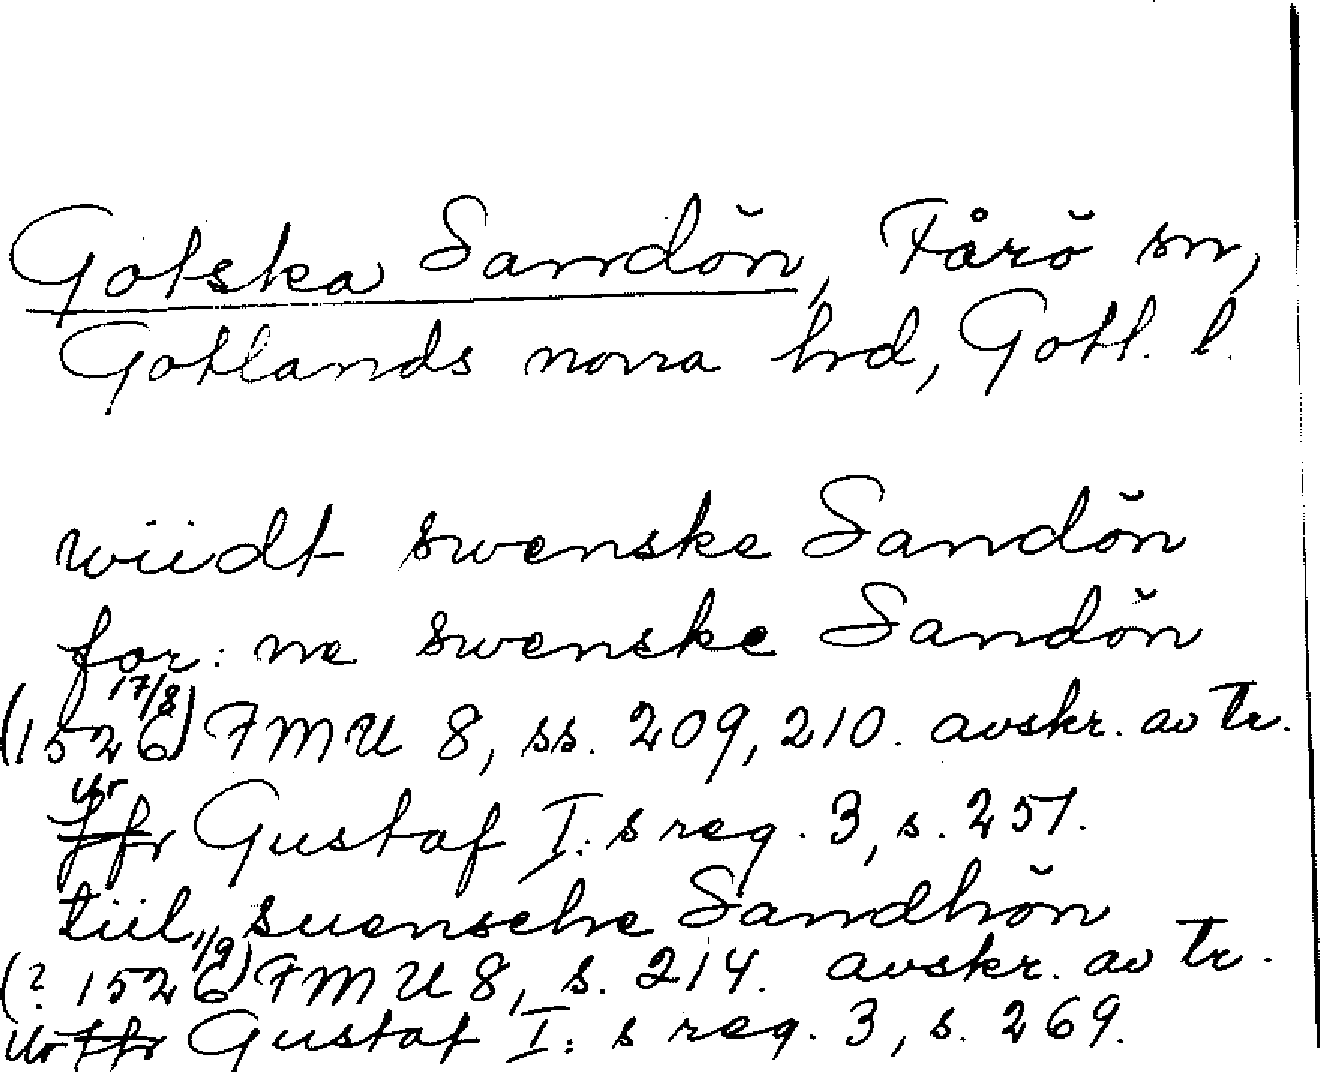 Gotska Sandön, Fårö sn,
Gotlands norra hrd, Gotl. l.
wiidt swenske Sandön
for: ne swenske Sandön
(1526 17/8) FMU 8, ss. 209, 210. avskr. av tr.
ur Gustaf I: s reg. 3, s. 257.
tiil suensche Sandhön
(? 1526 1/9) FMU 8, s. 214. avskr. av tr.
ur Gustaf I: s reg. 3, s. 269.